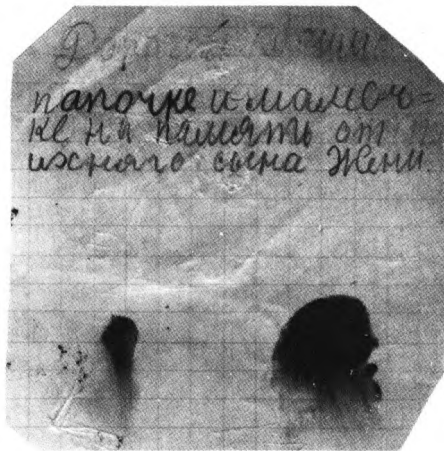 Дорогим
папочке и мамоч=
ке на память от
ихняго сына Жени.